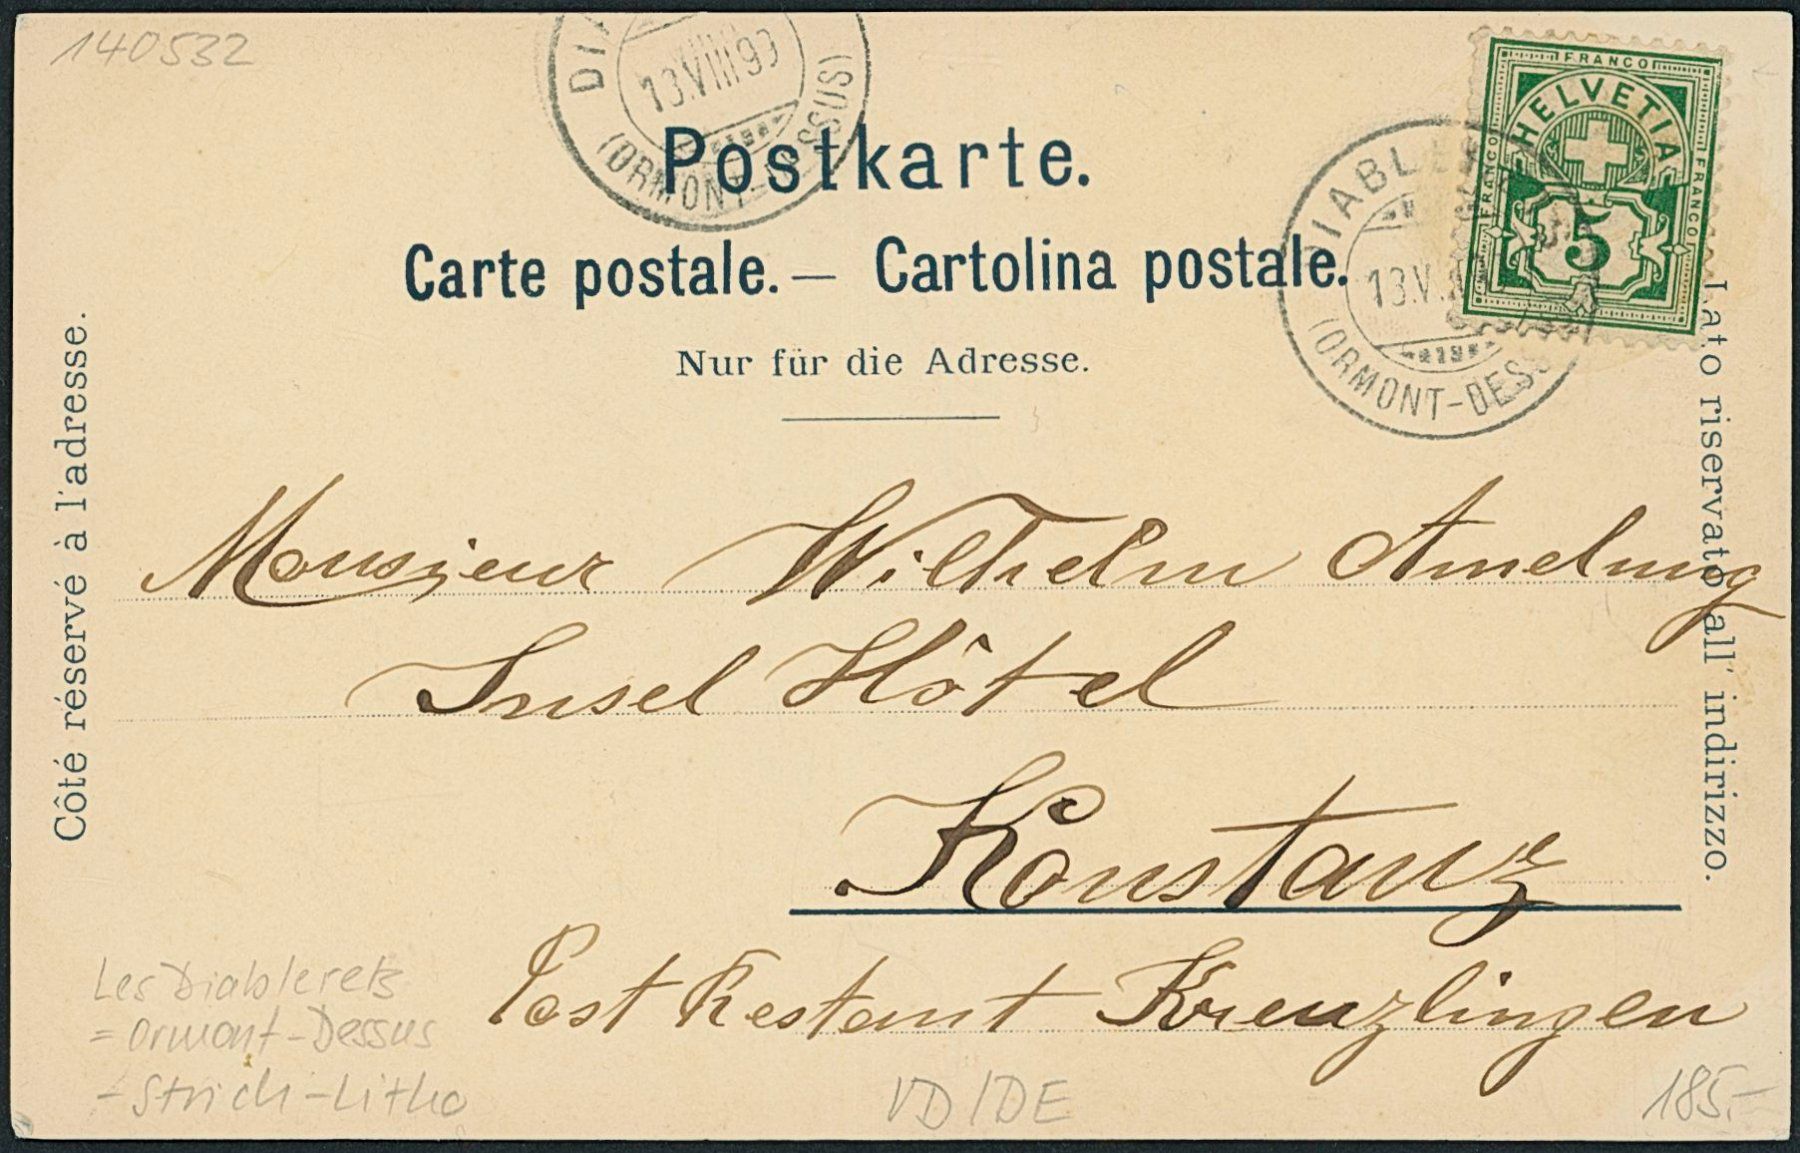 140532
13.VIII 99
(ORMONT-DESSUS)
FRANCO
HELVETIA
FRANCO
FRANCO
5
DIABLE
13.V
(ORMONT-DESS
Postkarte.
Carte postale. — Cartolina postale.
Nur für die Adresse.
Côté réservé à l'adresse.
Lato riservato all' indirizzo.
Monsieur Wilhelm Amelung
Insel Hôtel
Konstanz
Post Restant Kreuzlingen
Les Diablerets
= Ormont-Dessus
- Strich-Litho
VD/DE
185.-